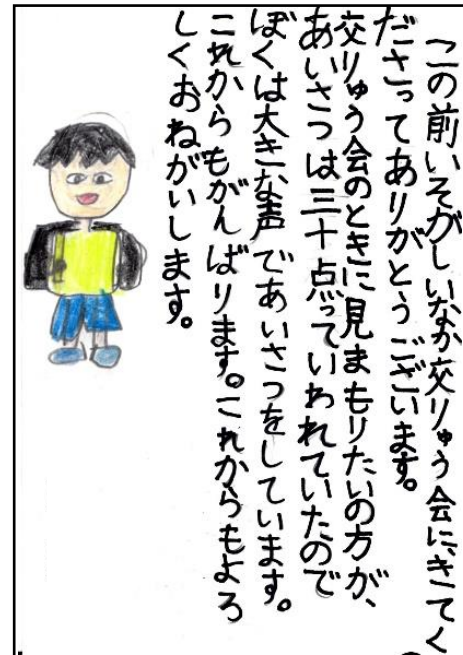 この前いそがしいなか交りゅう会に、きてく
ださってありがとうございます。
交りゅう会のときに見まもりたいの方が、
あいさつは三十点っていわれていたので
ぼくは大きな声であいさつをしています。
これからもがんばります。これからもよろ
しくおねがいします。